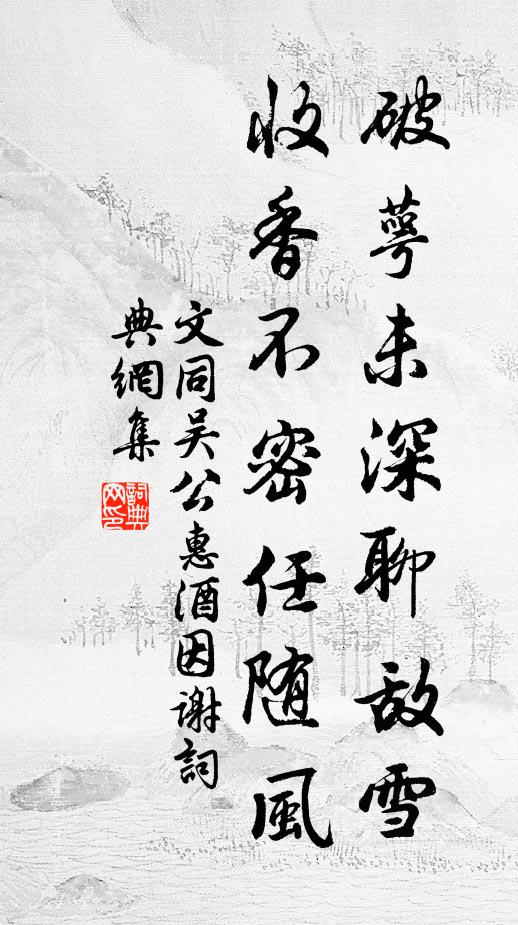 破萼未深聊敌雪
收香不密任随風
文同吴公惠酒因谢詞
典網集
詞典网印